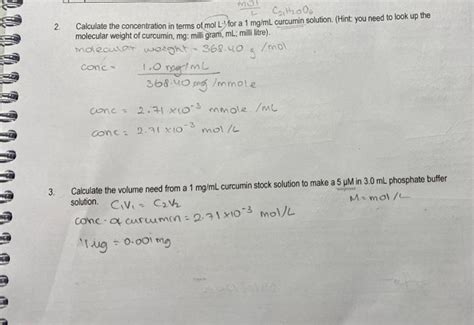 mol
L
C21H20O6
2. Calculate the concentration in terms of mol L-1 for a 1 mg/mL curcumin solution. (Hint: you need to look up the
molecular weight of curcumin, mg: milli gram, mL; milli litre).
molecular weight = 368.40 g/mol
conc = 1.0 mg/mL
368.40 mg/mmole
conc = 2.71 x10-3 mmole/mL
conc = 2.71 x10-3 mol/L
3. Calculate the volume need from a 1 mg/mL curcumin stock solution to make a 5 µM in 3.0 mL phosphate buffer
solution. C1V1 = C2V2
M = mol/L
conc. of curcumin = 2.71 x10-3 mol/L
1 ug = 0.001 mg